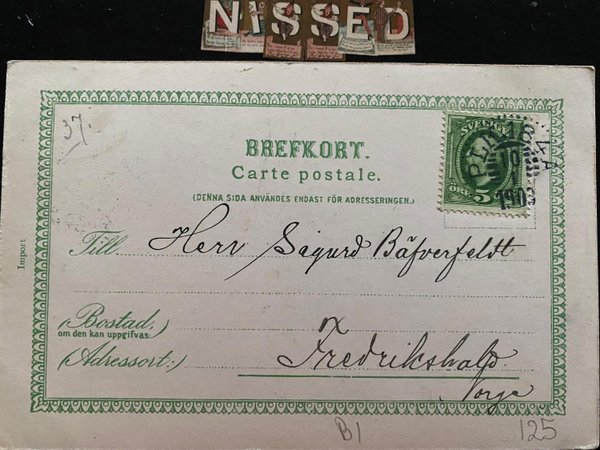 NISSED
37.
BREFKORT.
Carte postale.
(DENNA SIDA ANVÄNDES ENDAST FÖR ADRESSERINGEN.)
SVERIGE
ÖRE 5
PLK 4 A
16
10
190
Till Herr Sigurd Bäfverfeldt
(Bostad:)
om den kan uppgifvas:
(Adressort:) Fredrikshald
Norge
Import
B1
125